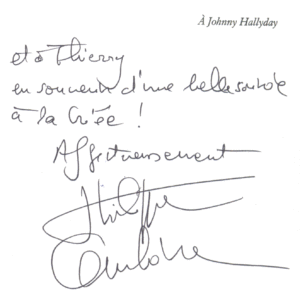 À Johnny Hallyday
et à Thierry
en souvenir d'une belle soirée
à la Criée !
Affectueusement
Philippe